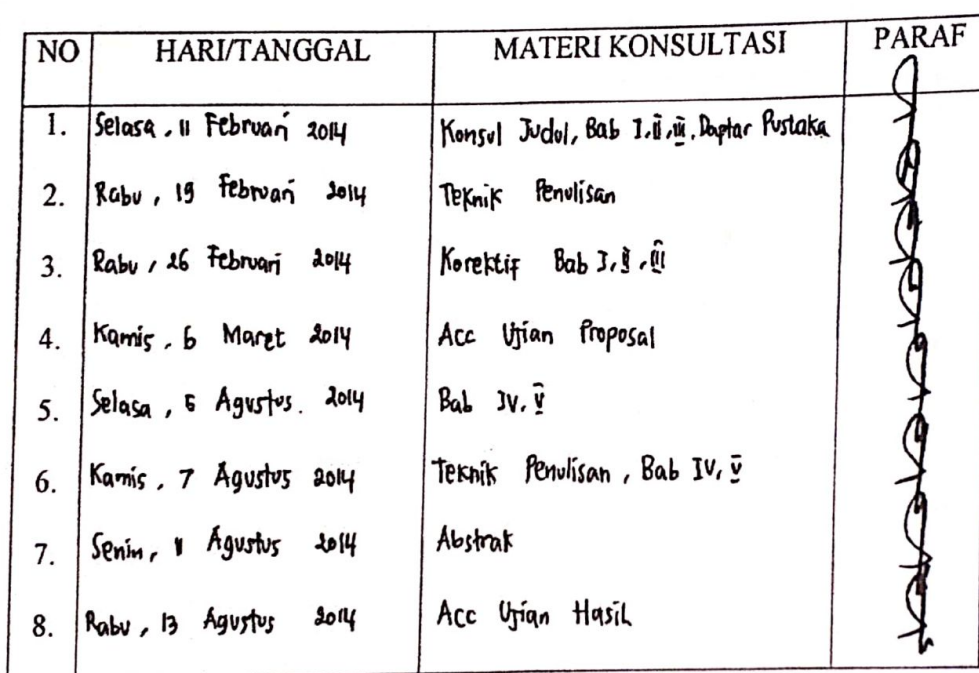 NO HARI/TANGGAL MATERI KONSULTASI PARAF
1. Selasa, 11 Februari 2014 Konsul Judul, Bab I, II, III, Daptar Pustaka
2. Rabu, 19 Februari 2014 Teknik Penulisan
3. Rabu, 26 Februari 2014 Korektif Bab I, II, III
4. Kamis, 6 Maret 2014 Acc Ujian Proposal
5. Selasa, 5 Agustus. 2014 Bab IV, V
6. Kamis, 7 Agustus 2014 Teknik Penulisan, Bab IV, V
7. Senin, 11 Agustus 2014 Abstrak
8. Rabu, 13 Agustus 2014 Acc Ujian Hasil